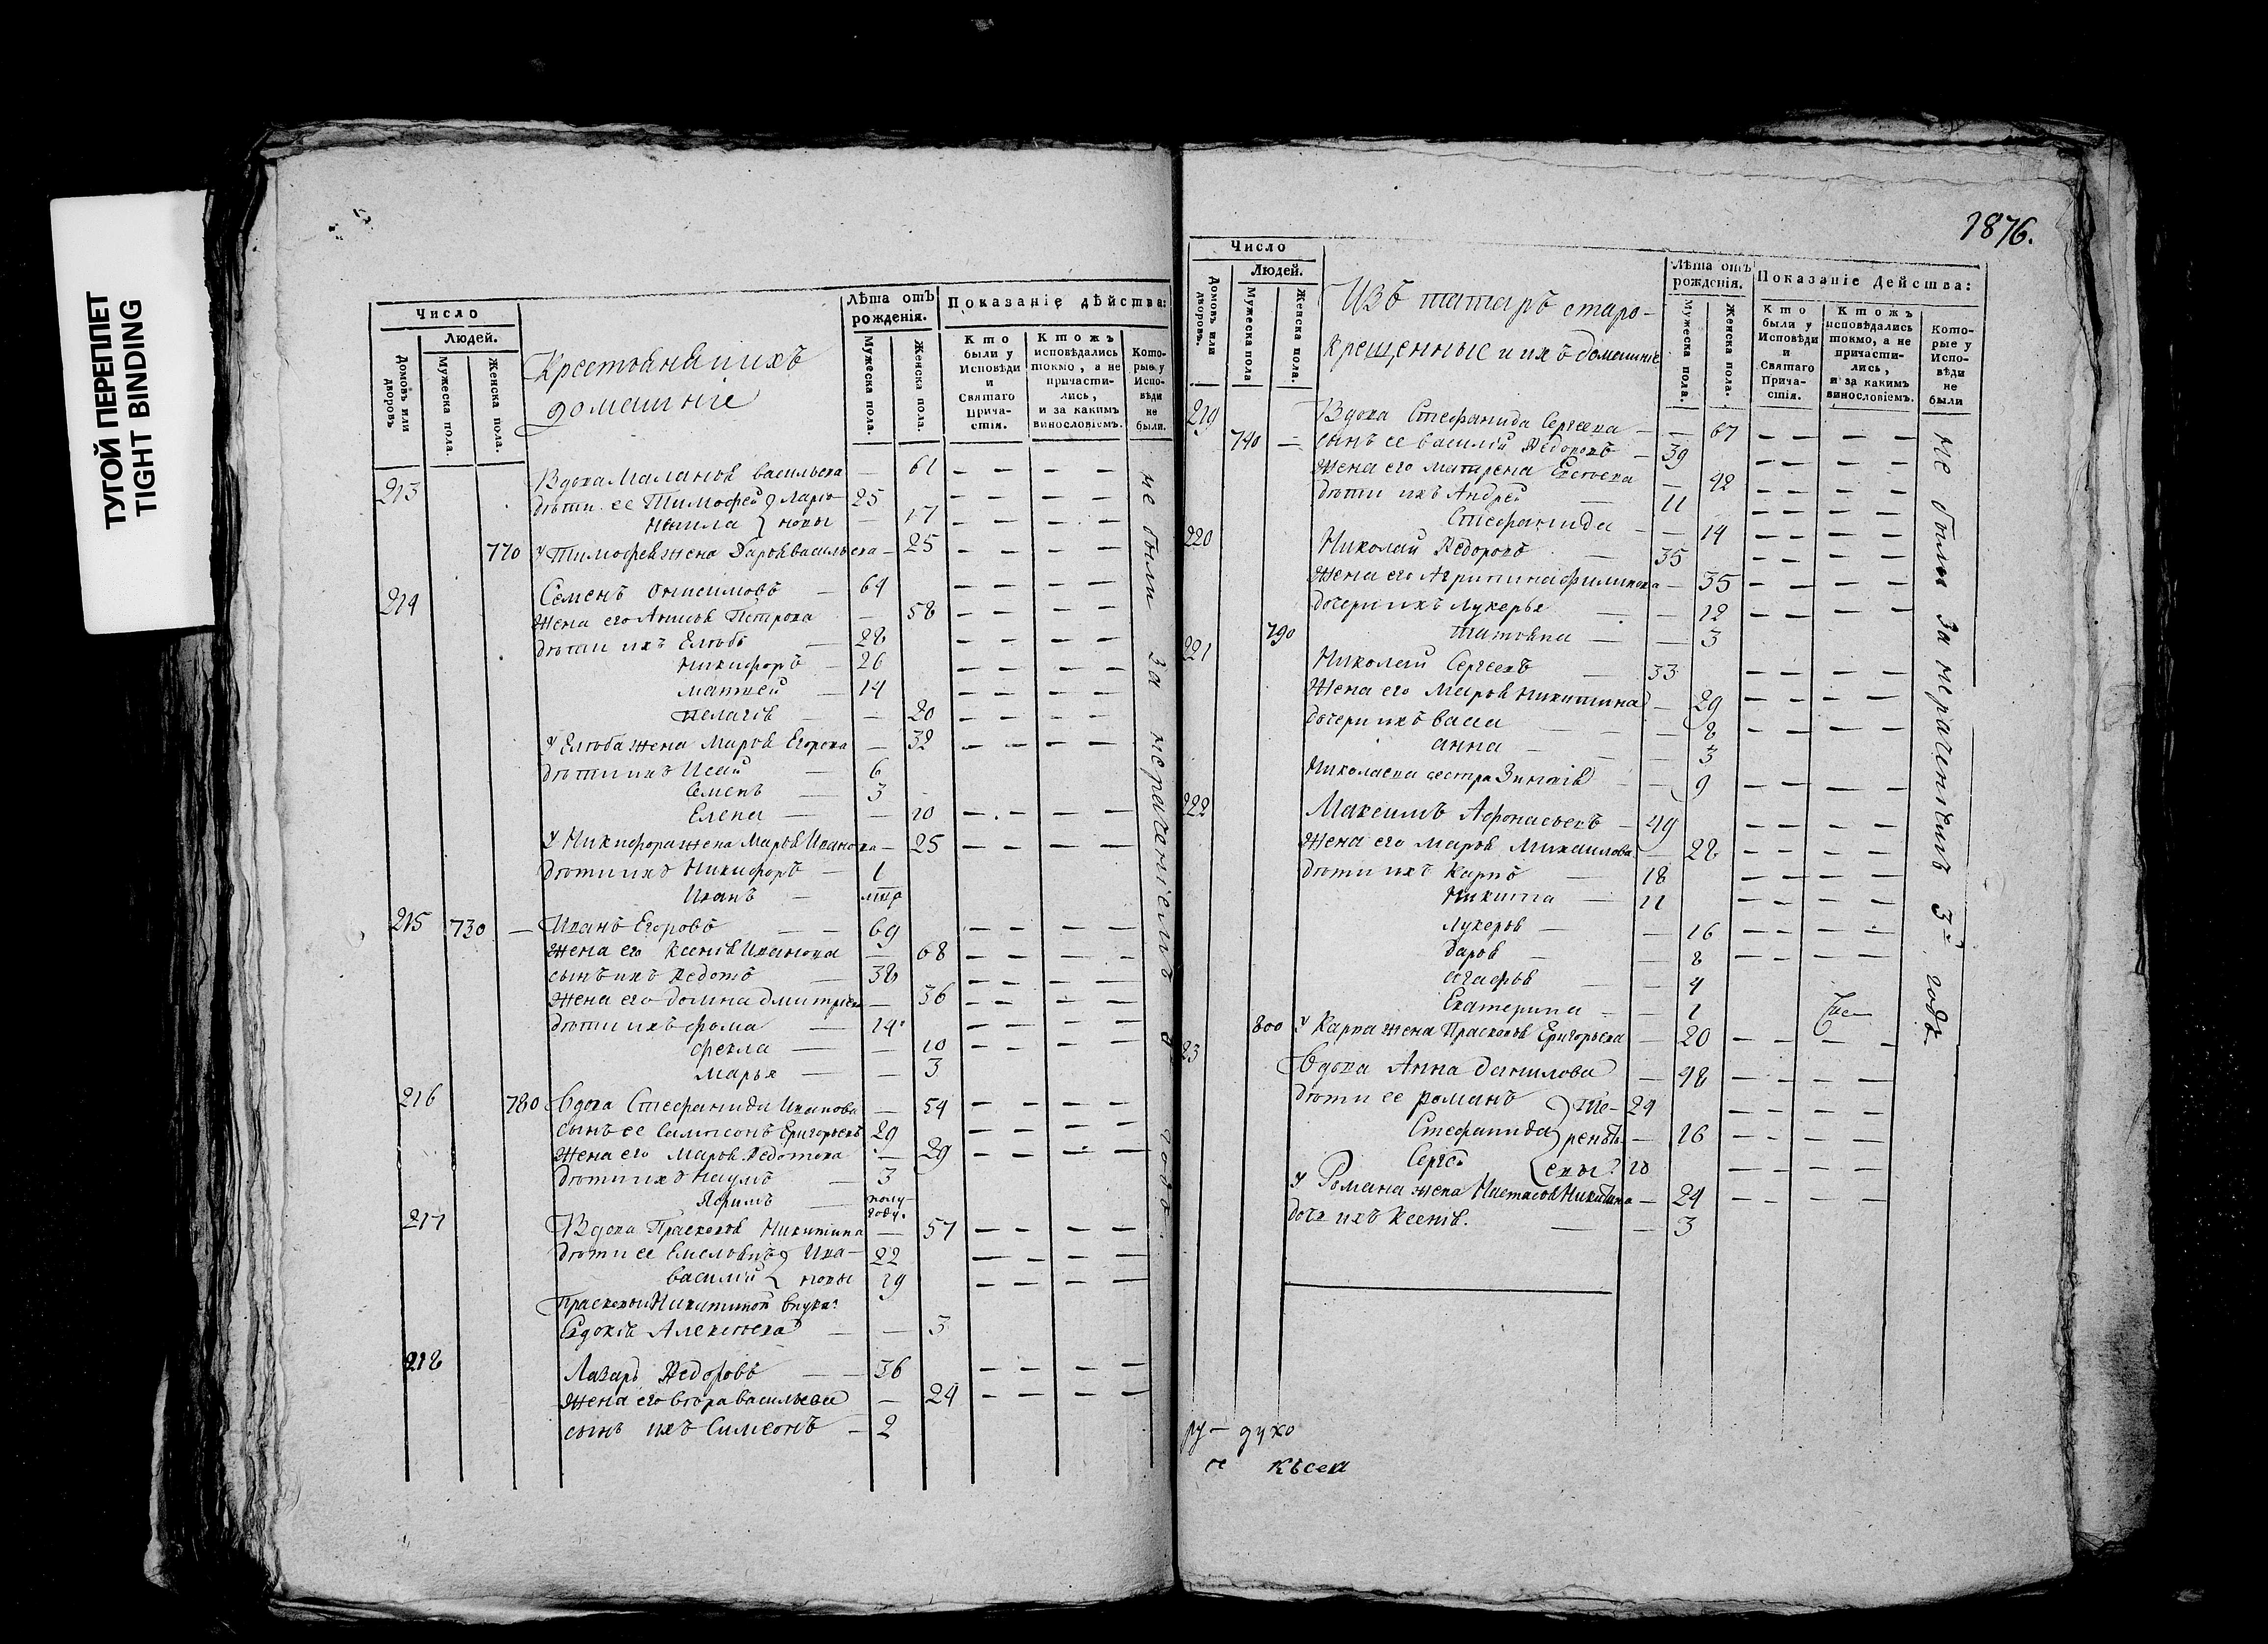 ТУГОЙ ПЕРЕПЛЕТ
TIGHT BINDING
Число
Людей.
Домовъ или дворовъ
Мужеска пола.
Женска пола.
Крестьяня и ихъ
домашніе
Лѣта отъ рожденія.
Мужеска пола.
Женска пола.
Показаніе дѣйства:
Кто были у Исповѣди и Святаго Причастія.
Ктожъ исповѣдались токмо, а не причастились, и за какимъ винословіемъ.
Которые у Исповѣди не были.
213 Вдова Маланья Васильева — 61
дѣти ее Тимофей Ларіо- 25
Ненила новы — 17
770 У Тимофея жена Дарья Васильева — 25
214 Семенъ Онисимовъ — 64
Жена его Анисья Петрова — 58
дѣти ихъ — 28
Никифоръ — 26
Матвей — 14
Пелагія — 20
жена Марья Егорова — 32
дѣти ихъ Исай — 6
Семенъ — 3
Елена — 10
У Никифора жена Марья Иванова — 25
дѣти ихъ Никифоръ — 1
Иванъ —
215 730 — Иванъ Егоровъ — 69
Жена его Ксенія Иванова — 68
сынъ ихъ Ѳедотъ 38
Жена его Домна Дмитріева — 36
дѣти ихъ Фома — 14
Фекла — 10
Марья — 3
216 780 Вдова Стефанида Иванова — 54
сынъ ее Самсонъ Григорьевъ 29
Жена его Марья Ѳедотова — 29
дѣти ихъ Наумъ — 3
Яфимъ — полу-
году.
217 Вдова Прасковья Никитина — 57
дѣти ее Емельянъ Ива- 22
Василій новы 19
Прасковьи Никитиной внука
Евдокія Алексѣева — 3
218 Лазарь Ѳедоровъ — 36
Жена его Васильева — 24
сынъ ихъ Симеонъ — 2
не были за нерачениемъ годъ
1876.
Число
Людей.
Домовъ или дворовъ.
Мужеска пола
Женска пола.
Изъ татаръ старо-
крещенные и ихъ домашніе
Лѣта отъ рожденія.
Мужеска пола.
Женска пола.
Показаніе Действа:
Кто были у Исповѣди и Святаго Причастія.
Ктожъ исповѣдались токмо, а не причастились, и за какимъ винословіемъ.
Которые у Исповѣди не были
219 Вдова Стефанида Сергеева — 67
740 — сынъ ее Василій Ѳедоровъ — 39
Жена его Матрена — 42
дѣти ихъ Андрей — 11
Стефанида — 14
220 Николай Ѳедоровъ — 35
Жена его Агрипина Филипова — 35
дочери ихъ Лукерья — 12
790 Татьяна — 3
221 Николай Сергеевъ 33
Жена его Марья Никитина — 29
дочери ихъ — 8
Анна — 3
Николаева сестра Зиновія — 9
222 Максимъ Афонасьевъ — 49
Жена его Марья Михаилова — 28
дѣти ихъ Карпъ — 18
Никита — 11
Лукерья — 16
Дарья — 8
Агафья — 4
Екатерина — 1
800 У Карпа жена Прасковья Григорьева — 20
23 Вдова Анна Данилова — 48
дѣти ее Романъ Те- 24
Стефанида рентье- — 16
Сергей евы 10
У Романа жена Настасья Никитина — 24
дочь ихъ Ксенія. — 3
не были за нерачениемъ 3й годъ
ру — духо